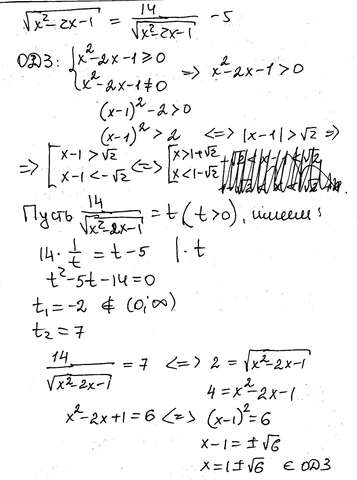 √(x²-2x-1) = 14/√(x²-2x-1) - 5
ОДЗ: { x²-2x-1 ≥ 0
x²-2x-1 ≠ 0 => x²-2x-1 > 0
(x-1)² - 2 > 0
(x-1)² > 2 <=> |x-1| > √2 =>
=> [ x-1 > √2 <=> [ x > 1+√2
x-1 < -√2 x < 1-√2
Пусть 14/√(x²-2x-1) = t, (t>0), имеем:
14 · 1/t = t - 5 | · t
t² - 5t - 14 = 0
t₁ = -2 ∉ (0; ∞)
t₂ = 7
14/√(x²-2x-1) = 7 <=> 2 = √(x²-2x-1)
4 = x²-2x-1
x²-2x+1 = 6 <=> (x-1)² = 6
x-1 = ±√6
x = 1±√6 ∈ ОДЗ